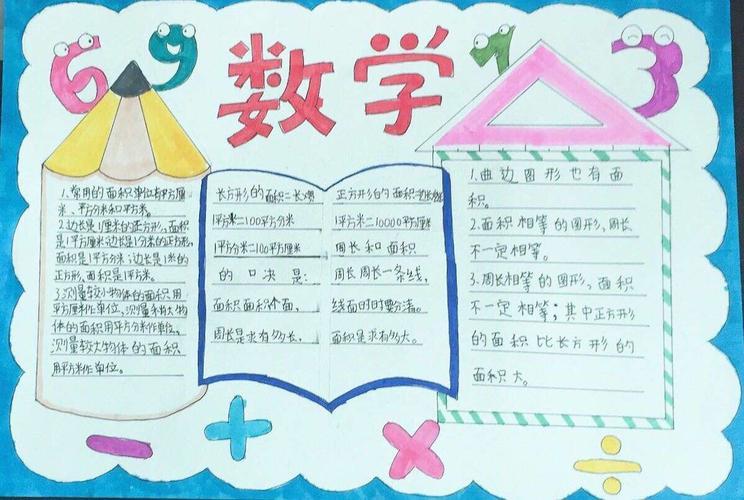 6 9 数学 3
1.常用的面积单位有平方厘
米、平方分米和平方米。
2.边长是1厘米的正方形,面积
是1平方厘米边长是1分米的正方形,
面积是1平方分米;边长是1米的
正方形,面积是1平方米。
3.测量较小物体的面积用
平方厘米作单位,测量大物
体的面积用平方分米作单位,
测量较大物体的面积
用平方米作单位。
长方形的面积=长×宽
1平方米=100平方分米
1平方分米=100平方厘米
的口决是:
面积面积个面,
周长是求有多长,
正方形的面积=边长×边长
1平方米=10000平方厘米
周长和面积
周长周长一条线,
线面时时要分清。
面积是求有多大。
1.曲边图形也有面
积。
2.面积相等的图形,周长
不一定相等。
3.周长相等的图形,面积
不一定相等;其中正方形
的面积比长方形的
面积大。
− + × ÷